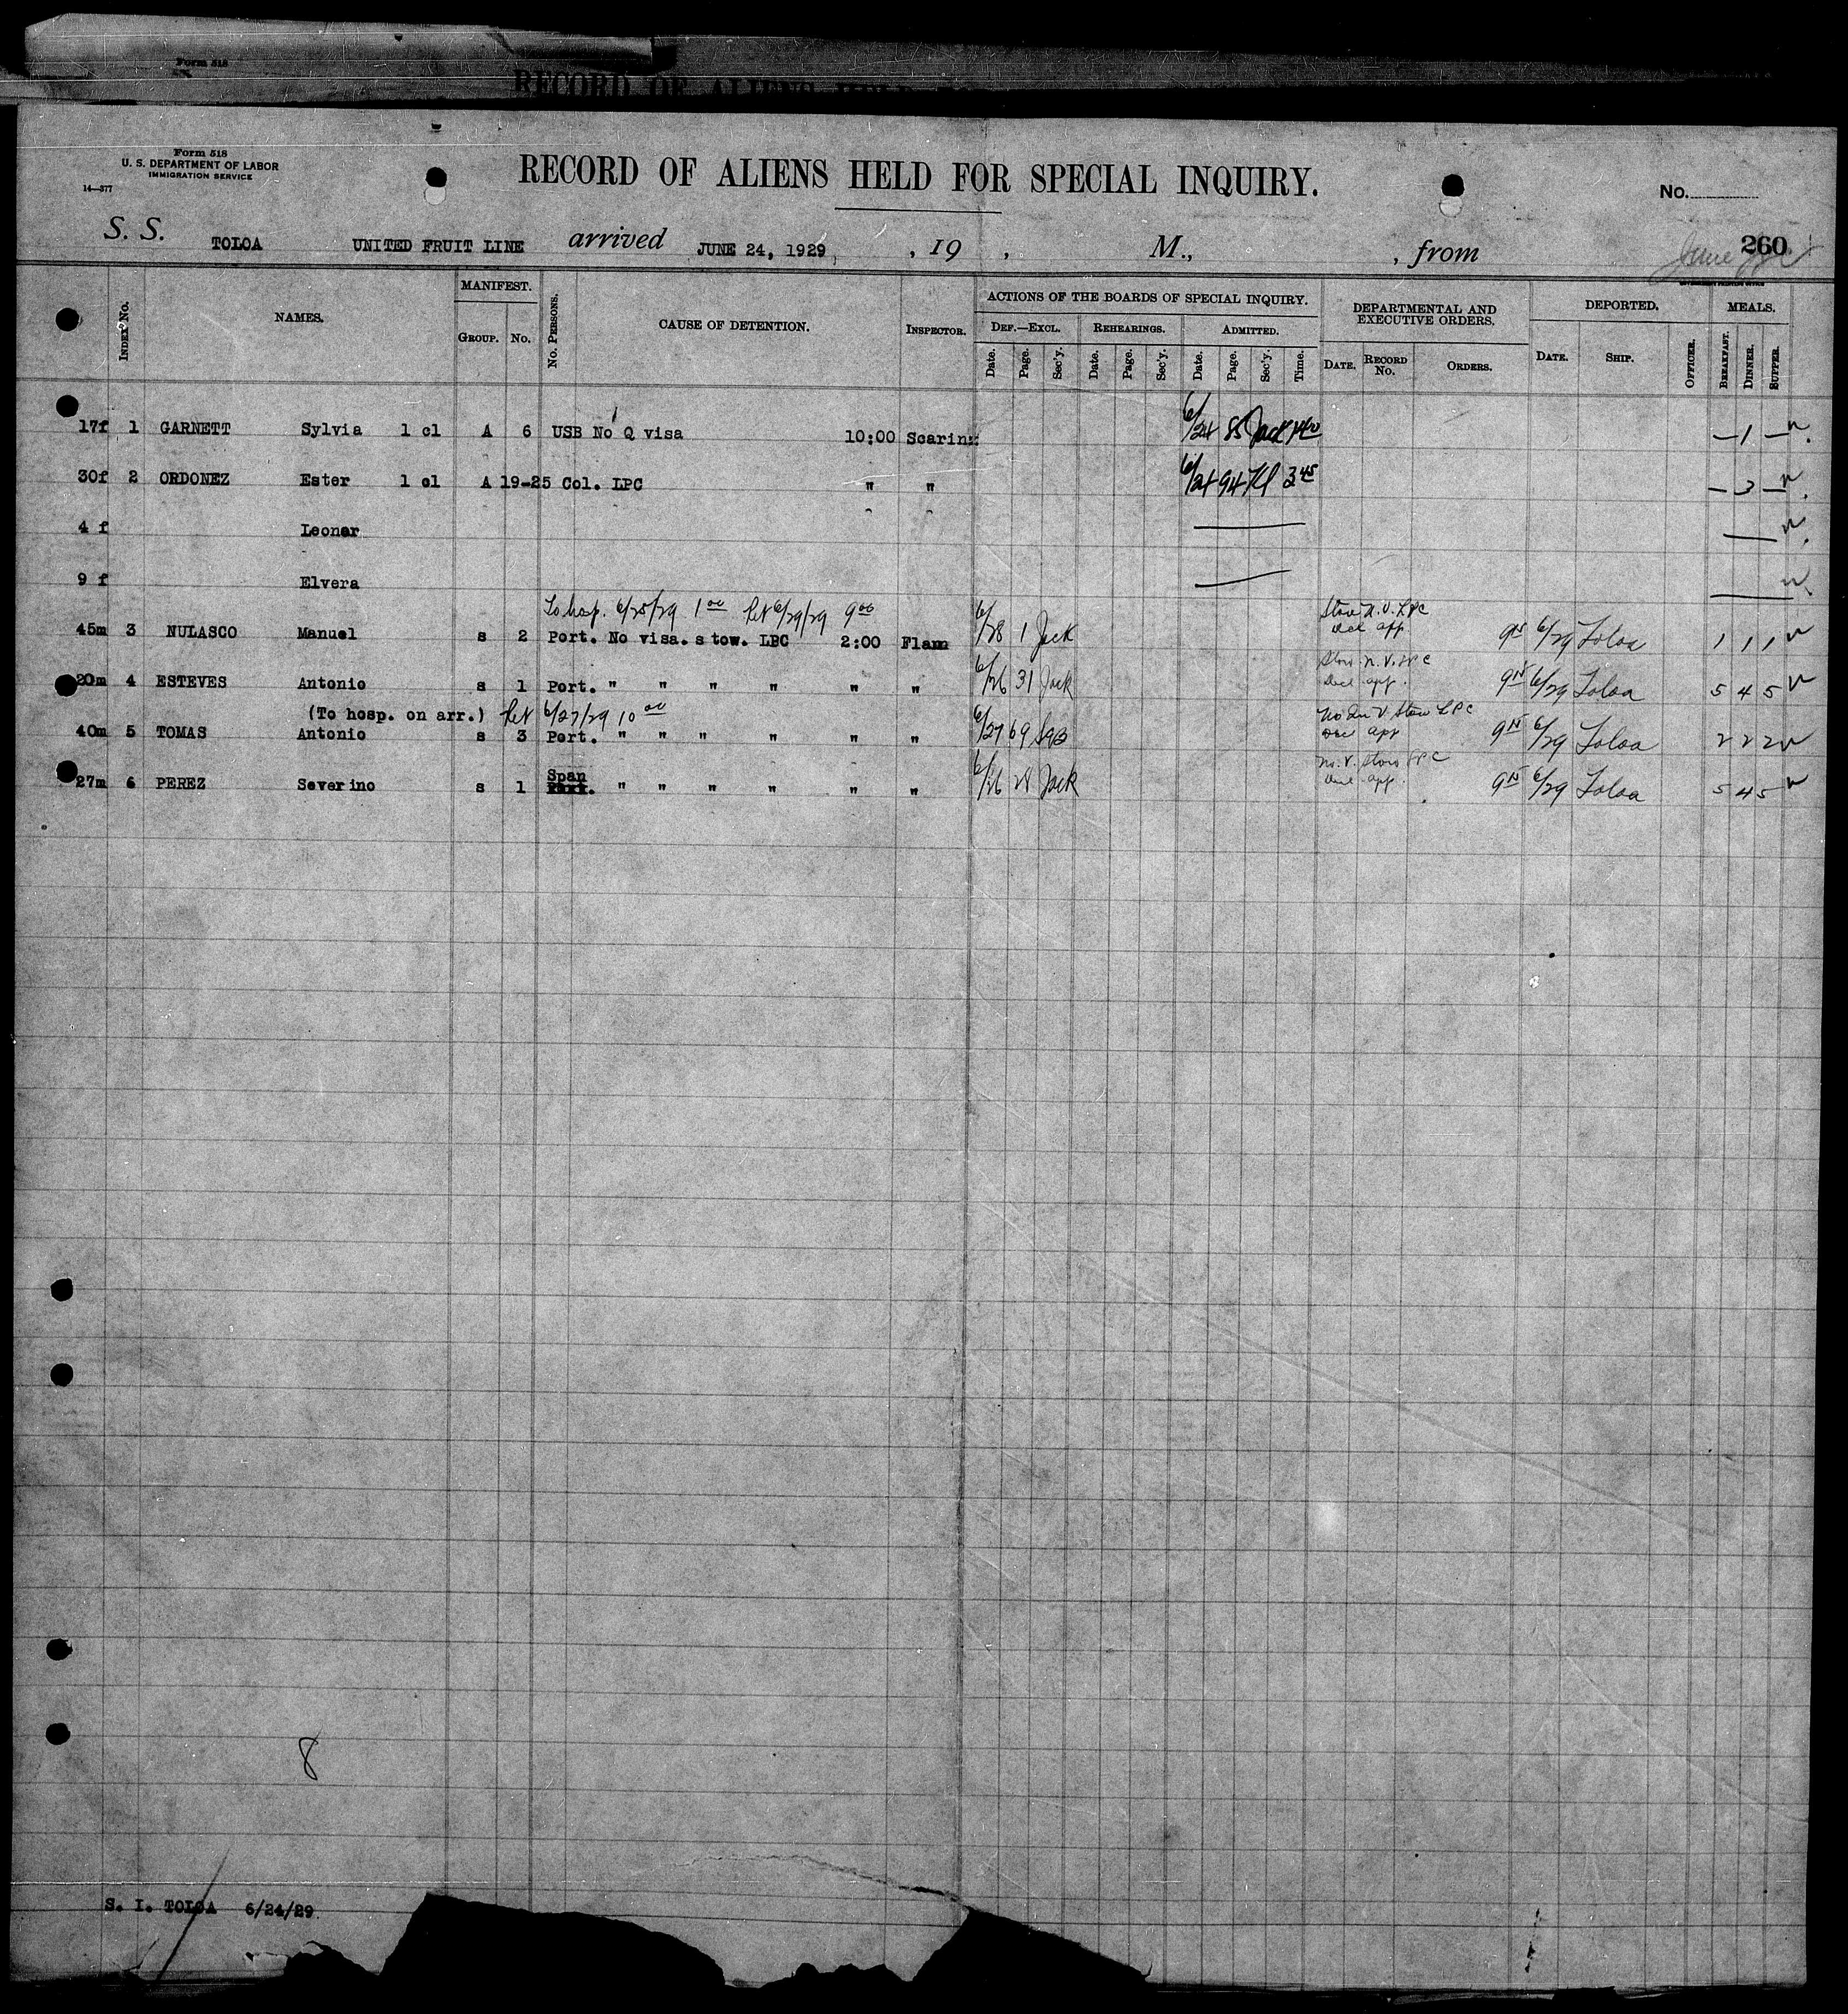 Form 518
RECORD OF ALIENS HELD
Form 518
U. S. DEPARTMENT OF LABOR
IMMIGRATION SERVICE
14—377
RECORD OF ALIENS HELD FOR SPECIAL INQUIRY.
No.
S. S. TOLOA UNITED FRUIT LINE arrived JUNE 24, 1929 , 19 , M., , from
260
INDEX No. NAMES. MANIFEST. GROUP. No. No. PERSONS. CAUSE OF DETENTION. INSPECTOR. ACTIONS OF THE BOARDS OF SPECIAL INQUIRY. DEF.—EXCL. Date. Page. Sec'y. REHEARINGS. Date. Page. Sec'y. ADMITTED. Date. Page. Sec'y. Time. DEPARTMENTAL AND EXECUTIVE ORDERS. DATE. RECORD No. ORDERS. DEPORTED. DATE. SHIP. OFFICER. MEALS. BREAKFAST. DINNER. SUPPER.
17f 1 GARNETT Sylvia 1 cl A 6 USB No Q visa 10:00 Scarin 6/24 85 Jack — 1 —
30f 2 ORDONEZ Ester 1 cl A 19-25 Col. LPC " " 6/24 94 3 45 — 3 —
4 f Leonor
9 f Elvera
To hosp. 6/25/29 1 00 Ret 6/29/29 9 00 Stow N.V. LPC
45m 3 NULASCO Manuel s 2 Port. No visa. stow. LPC 2:00 Flam 6/28 1 Jack Decl app. 6/29 Toloa 1 1 1
Stow. N.V. LPC
20m 4 ESTEVES Antonio s 1 Port. " " " " " " 6/26 31 Jack Decl app. 6/29 Toloa 5 4 5
(To hosp. on arr.) Ret 6/27/29 10 00 Stow LPC
40m 5 TOMAS Antonio s 3 Port. " " " " " " 6/27 69 app 6/29 Toloa 2 2 2
Span N.V. Stow LPC
27m 6 PEREZ Severino s 1 Port. " " " " " " 6/26 28 Jack Decl app. 6/29 Toloa 5 4 5
8
S. I. TOLOA 6/24/29